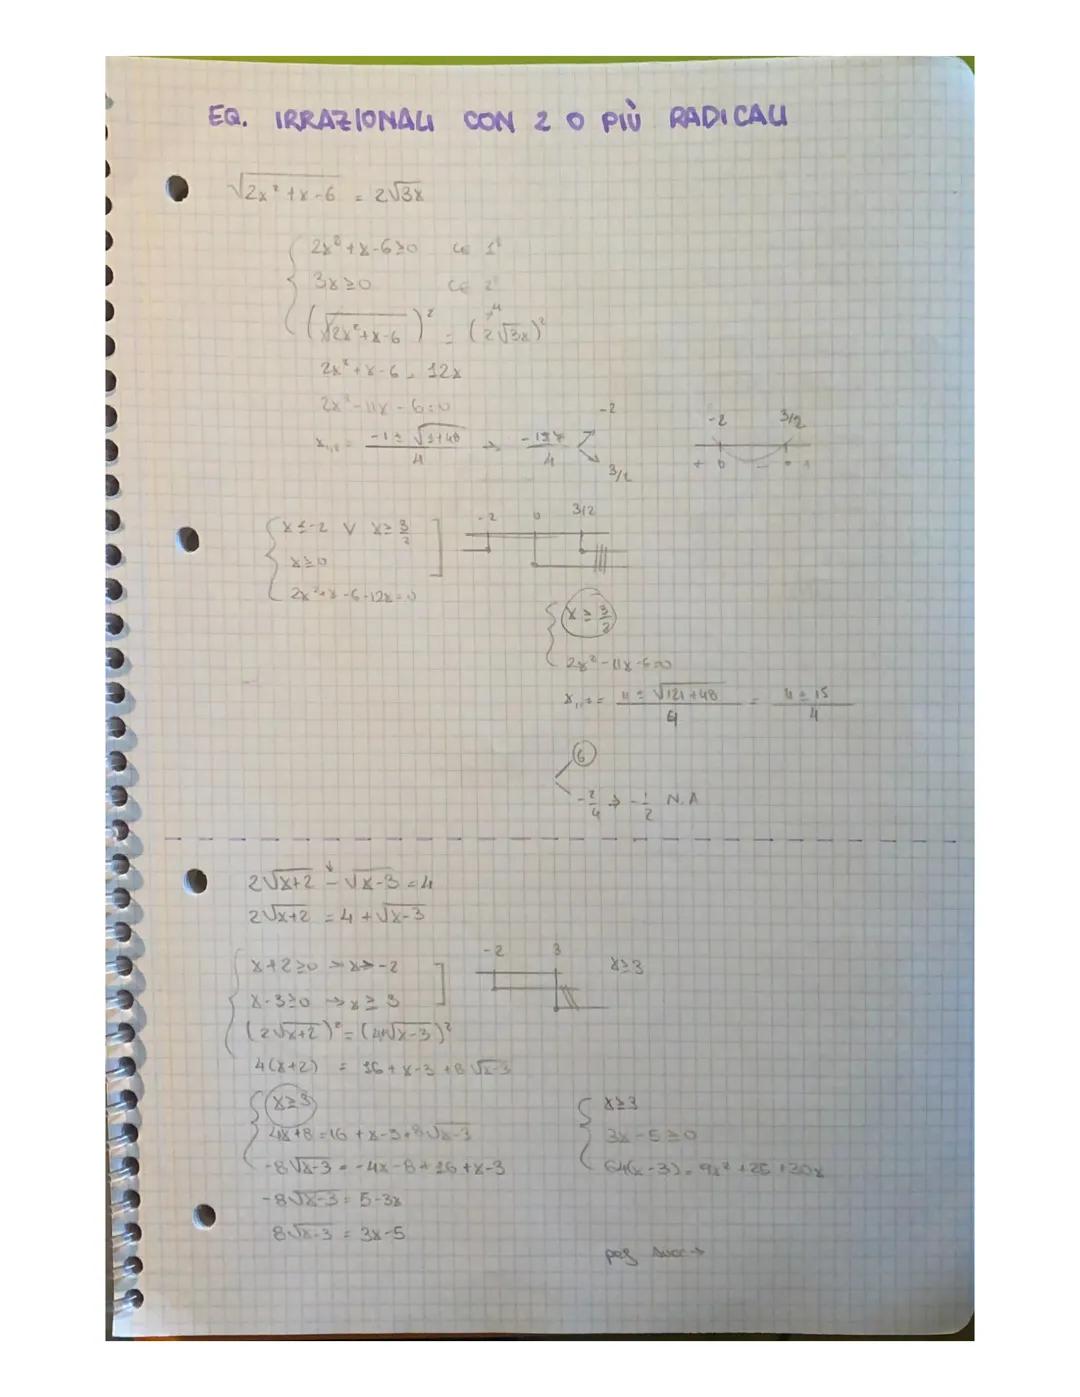 EQ. IRRAZIONALI CON 2 O PIÙ RADICALI
√(2x²+x-6) = 2√3x
2x²+x-6≥0 CE 1°
3x≥0 CE 2°
(√(2x²+x-6))² = (2√3x)²
2x²+x-6 = 12x
2x²-11x-6=0
x₁,₂ = (-1±√(1+48))/4 → (-1±7)/4 -2 3/2
-2 3/2
+ 0 - 0 +
x≤-2 V x≥3/2
x≥0
2x²+x-6-12x=0
-2 0 3/2
x≥3/2
2x²-11x-6=0
x₁,₂ = (11±√(121+48))/4 = (11±15)/4
6
-2/4 → -1/2 N.A
2√(x+2) - √(x-3) = 4
2√(x+2) = 4+√(x-3)
x+2≥0 → x≥-2
x-3≥0 → x≥3
-2 3 x≥3
(2√(x+2))² = (4+√(x-3))²
4(x+2) = 16+x-3+8√(x-3)
x≥3
4x+8=16+x-3+8√(x-3)
-8√(x-3) = -4x-8+16+x-3
-8√(x-3) = 5-3x
8√(x-3) = 3x-5
x≥3
3x-5≥0
64(x-3) = 9x²+25+30x
pag succ →